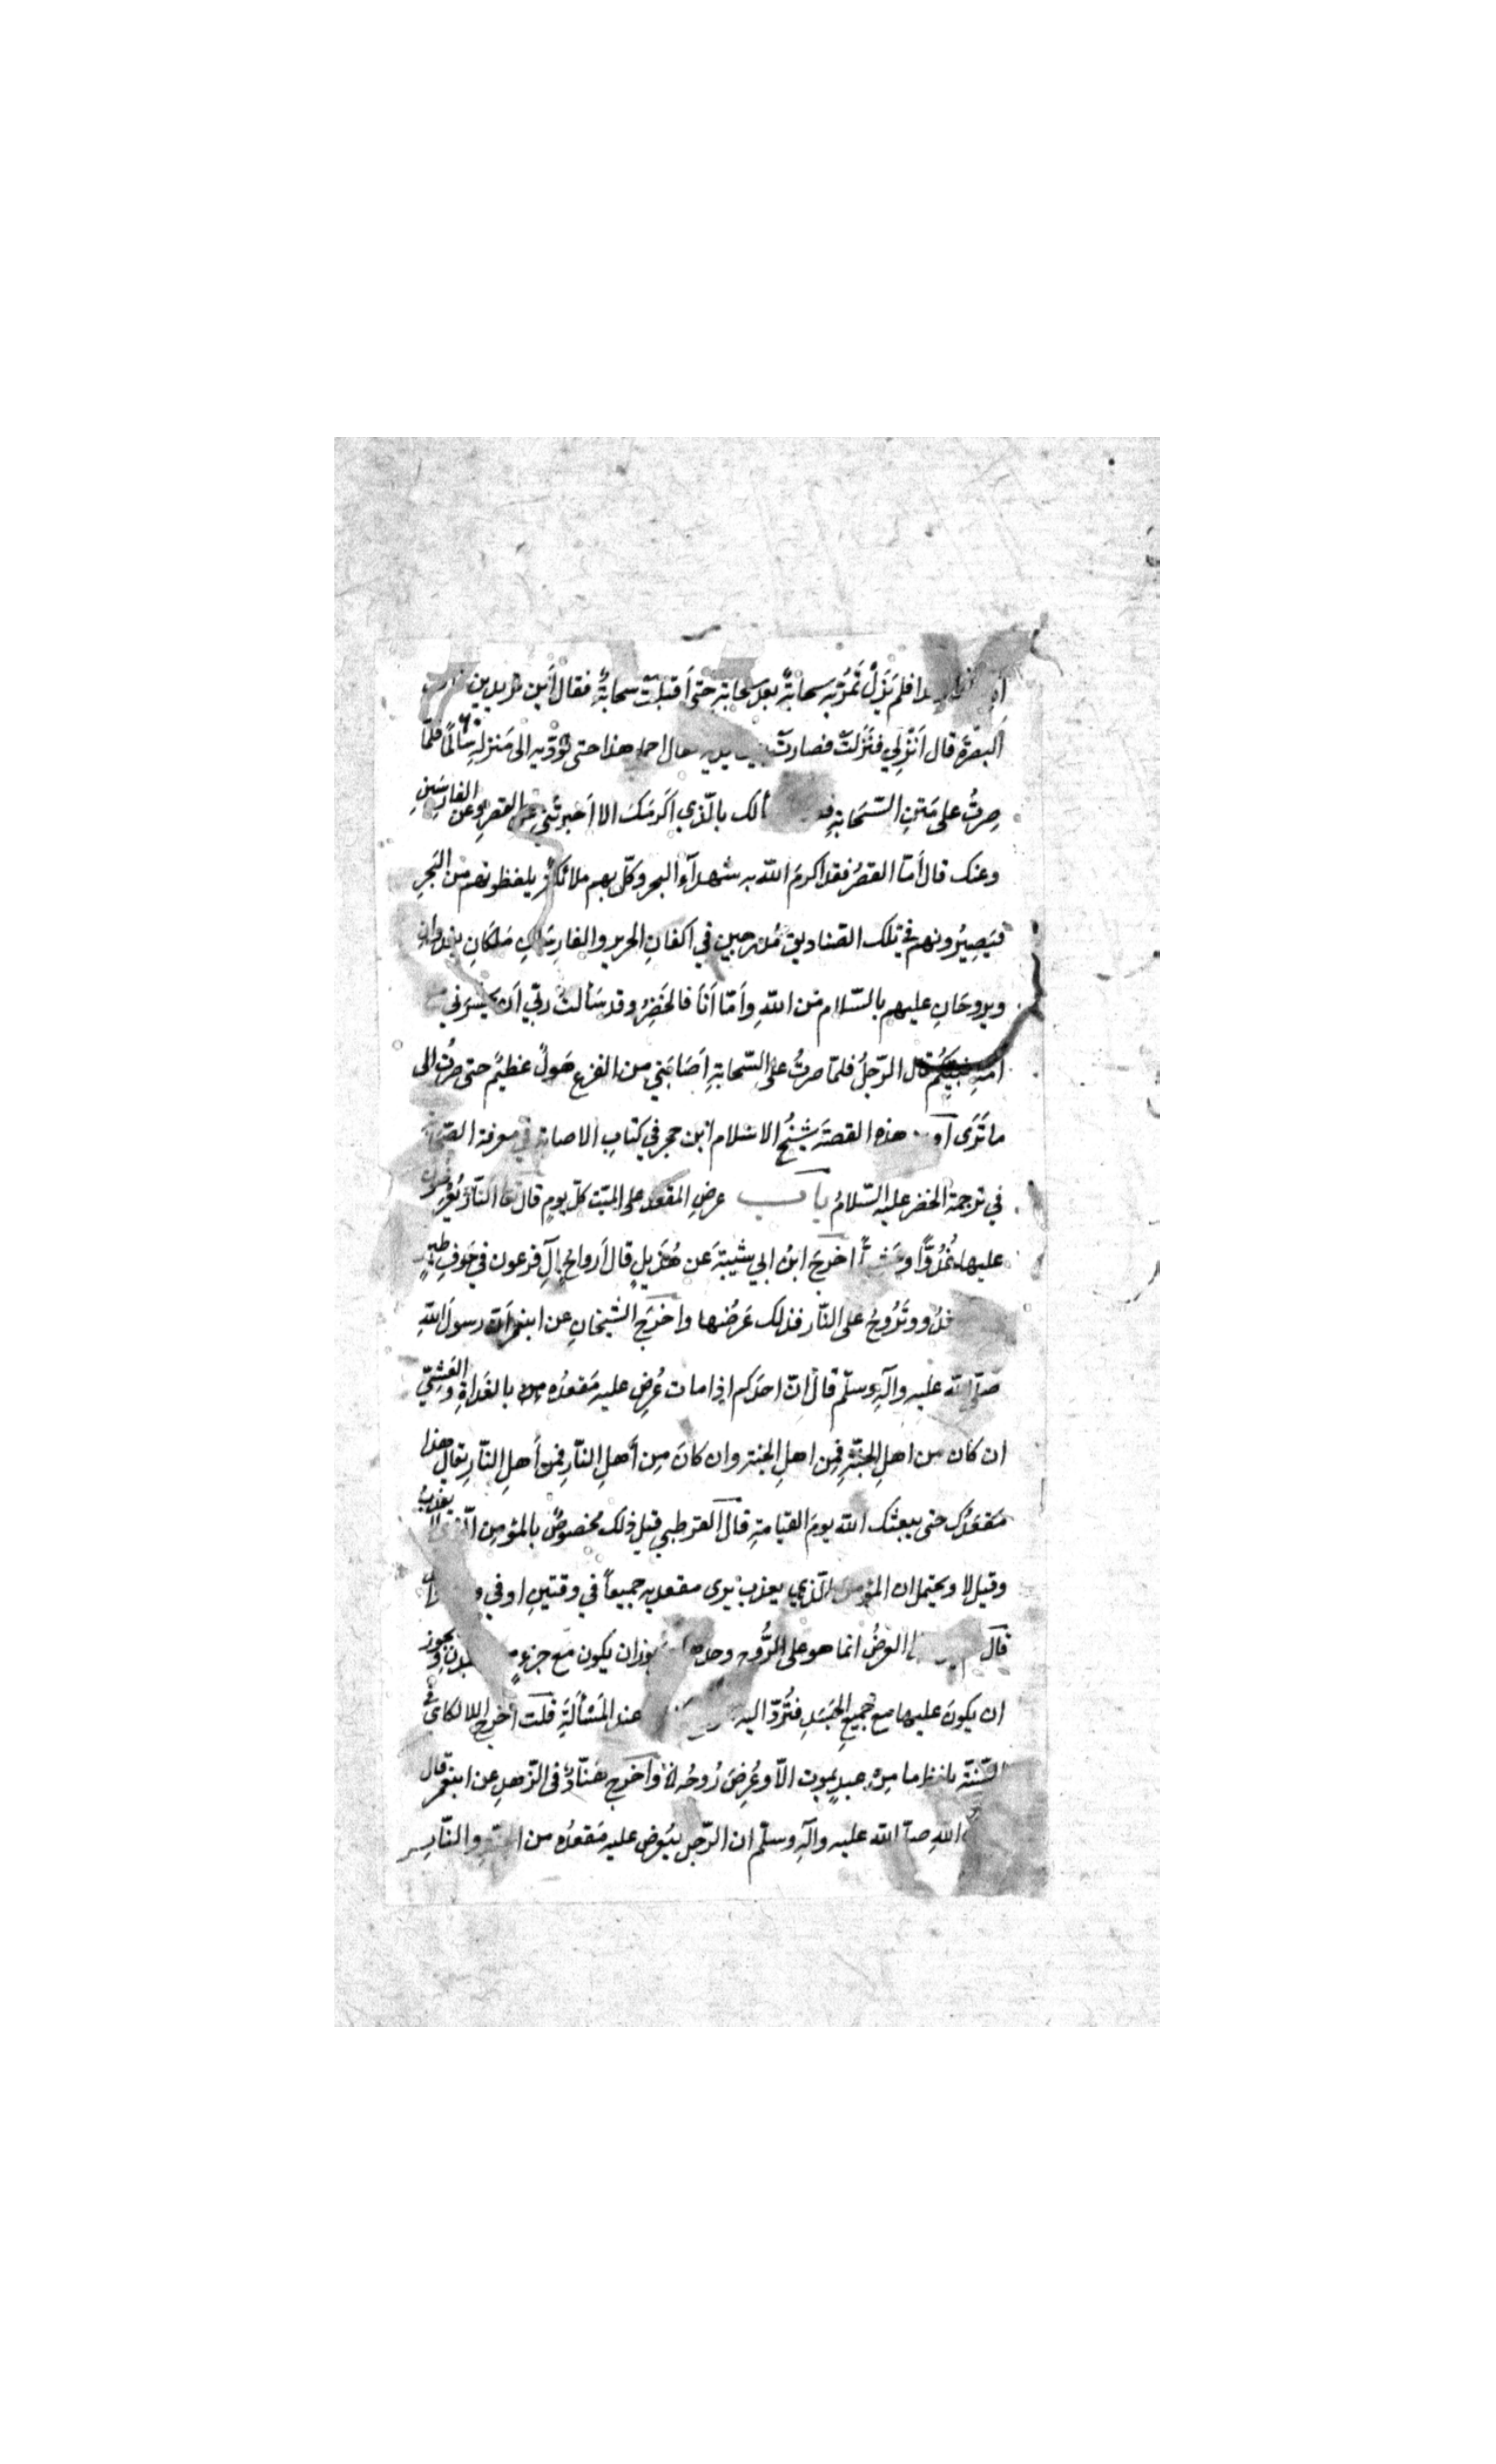 فلم تَزَلْ تَمُرُّ به سحابةٌ بعد سحابةٍ حتى أقبلت سحابةٌ فقال أين تريدين
البصرةَ قال اَنْزِلي فنَزَلتْ فصارت بين يديه فقال احمل هذا حتى تؤدّيه الى مَنزلهِ سالمًا فلمّا
صِرتُ على مَتنِ السّحَابةِ بالّذي اَكرَمَكَ الا اَخبرتَني عن القصرِ وعن الفارسَينِ
وعنك قال أمّا القصرُ فقد اكرمَ اللّه به شهدآءَ البحر وكّل بهم ملائكةً يلفظونهم من البَحرِ
فيَصِيرُونهم في تلك الصّناديق مُدرجين في اكفانِ الحرير والفارِسَانِ مَلَكانِ يغدوانِ
ويروحَانِ عليهم بالسّلام مّن اللّهِ واَمّا اَنَا فالخَضِرُ وقد سَألتُ ربّي اَن يحشرني
اُمّةِ نبيّكم قال الرّجلُ فلمّا صِرتُ على السّحابةِ اَصَابَني من الفزعِ هَولٌ عظيمٌ حتى صِرتُ الى
ما تَرَى هذه القصّةَ شيخُ الاسلام ابن حجر في كتابِ الاصابة في معرفة الصحابة
في ترجمة الخضر عليه السّلامُ باب عرضِ المقعد على الميّت كلّ يومٍ قال تعالى النّارُ يُعْرَضُونَ
عليها غُدُوًّا وعَشِيًّا اخرَجَ ابنُ ابي شيبةَ عن هُذَيلٍ قال اَرواحُ آلِ فرعون في جَوفِ طيرٍ
وتَرُوحُ على النّار فذلك عَرضُها واخرَج الشيخانِ عن ابن عمر اَنّ رسولَ اللّهِ
صلّى اللّه عليه وآلهِ وسلّم قال انّ احدَكم اذا مات عُرِضَ عليه مَقعدُه بالغَداةِ والعَشِيّ
ان كان من اهلِ الجنّةِ فمِن اهلِ الجنة وان كانَ مِن أهلِ النّارِ فمن أهلِ النّارِ يقال هذا
مَقعَدُك حتى يبعثك اللّه يومَ القيامةِ قال القرطبي قيل ذلك مخصوصٌ بالمؤمِن الّذي لا يعذبُ
وقيل لا ويحتمل ان المؤمن الّذي يعذب يرى مقعديه جميعاً في وقتينِ او في
قال العرضُ انما هو على الرُّوح وحده ويجوز ان يكون مع جزءٍ من البدنِ ويجوز
ان يكونَ عليها مع جميعِ الجَسَدِ فتُردّ اليه عند المَسْألَةِ قلت اخرج اللالكائى في
السّنّة بلفظ ما مِن عبدٍ يموت الّا وعُرِضَ رُوحُه واَخرج هَنّادٌ في الزّهدِ عن ابن عمر قال
اللّهِ صلّى اللّه عليه وآلهِ وسلّم ان الرّجل ليُعرض عليه مَقعدُه من الجنّةِ والنّارِ